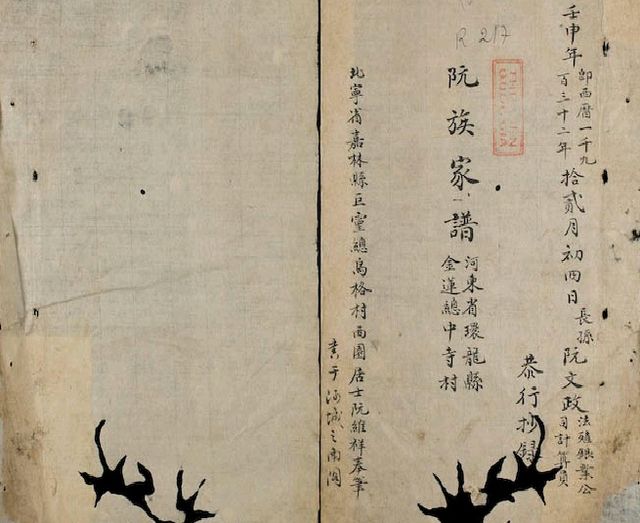 壬申年即西曆一千九百三十二年拾貳月初四日長孫阮文政法殖鉄業公司計算員
恭行抄録
R 217
阮族家譜河東省環龍縣金蓮總中寺村
北寧省嘉林縣巨靈總烏格村西園居士阮維祥奉筆
書于河城之南閣